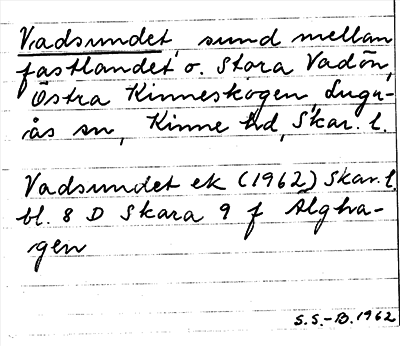 Vadsundet, sund mellan
fastlandet o. Stora Vadön,
Östra Kinneskogen, Lugn-
ås sn, Kinne hd, Skar. l.
Vadsundet ek (1962) Skar. l.
bl. 8 D Skara 9 f Älgha-
gen
S.S.-B. 1962